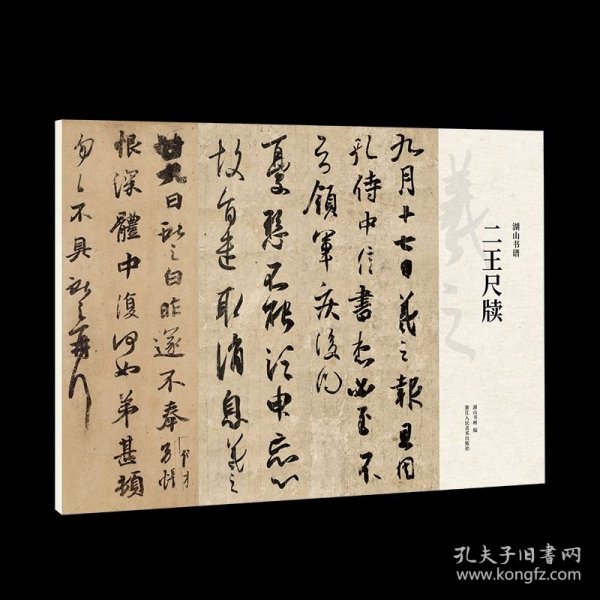 湖山书谱
二王尺牍
羲之
湖山书画 编
浙江人民美术出版社
九月十七日羲之報且因
孔侍中信書想必至不
知領軍疾後問
憂懸不能須臾忘心
故旨遣取消息羲之
報
廿九日献之白昨遂不奉别悵
恨深體中復何如弟甚頓
匆匆不具献之再拜
孔夫子旧书网
www.kongfz.com